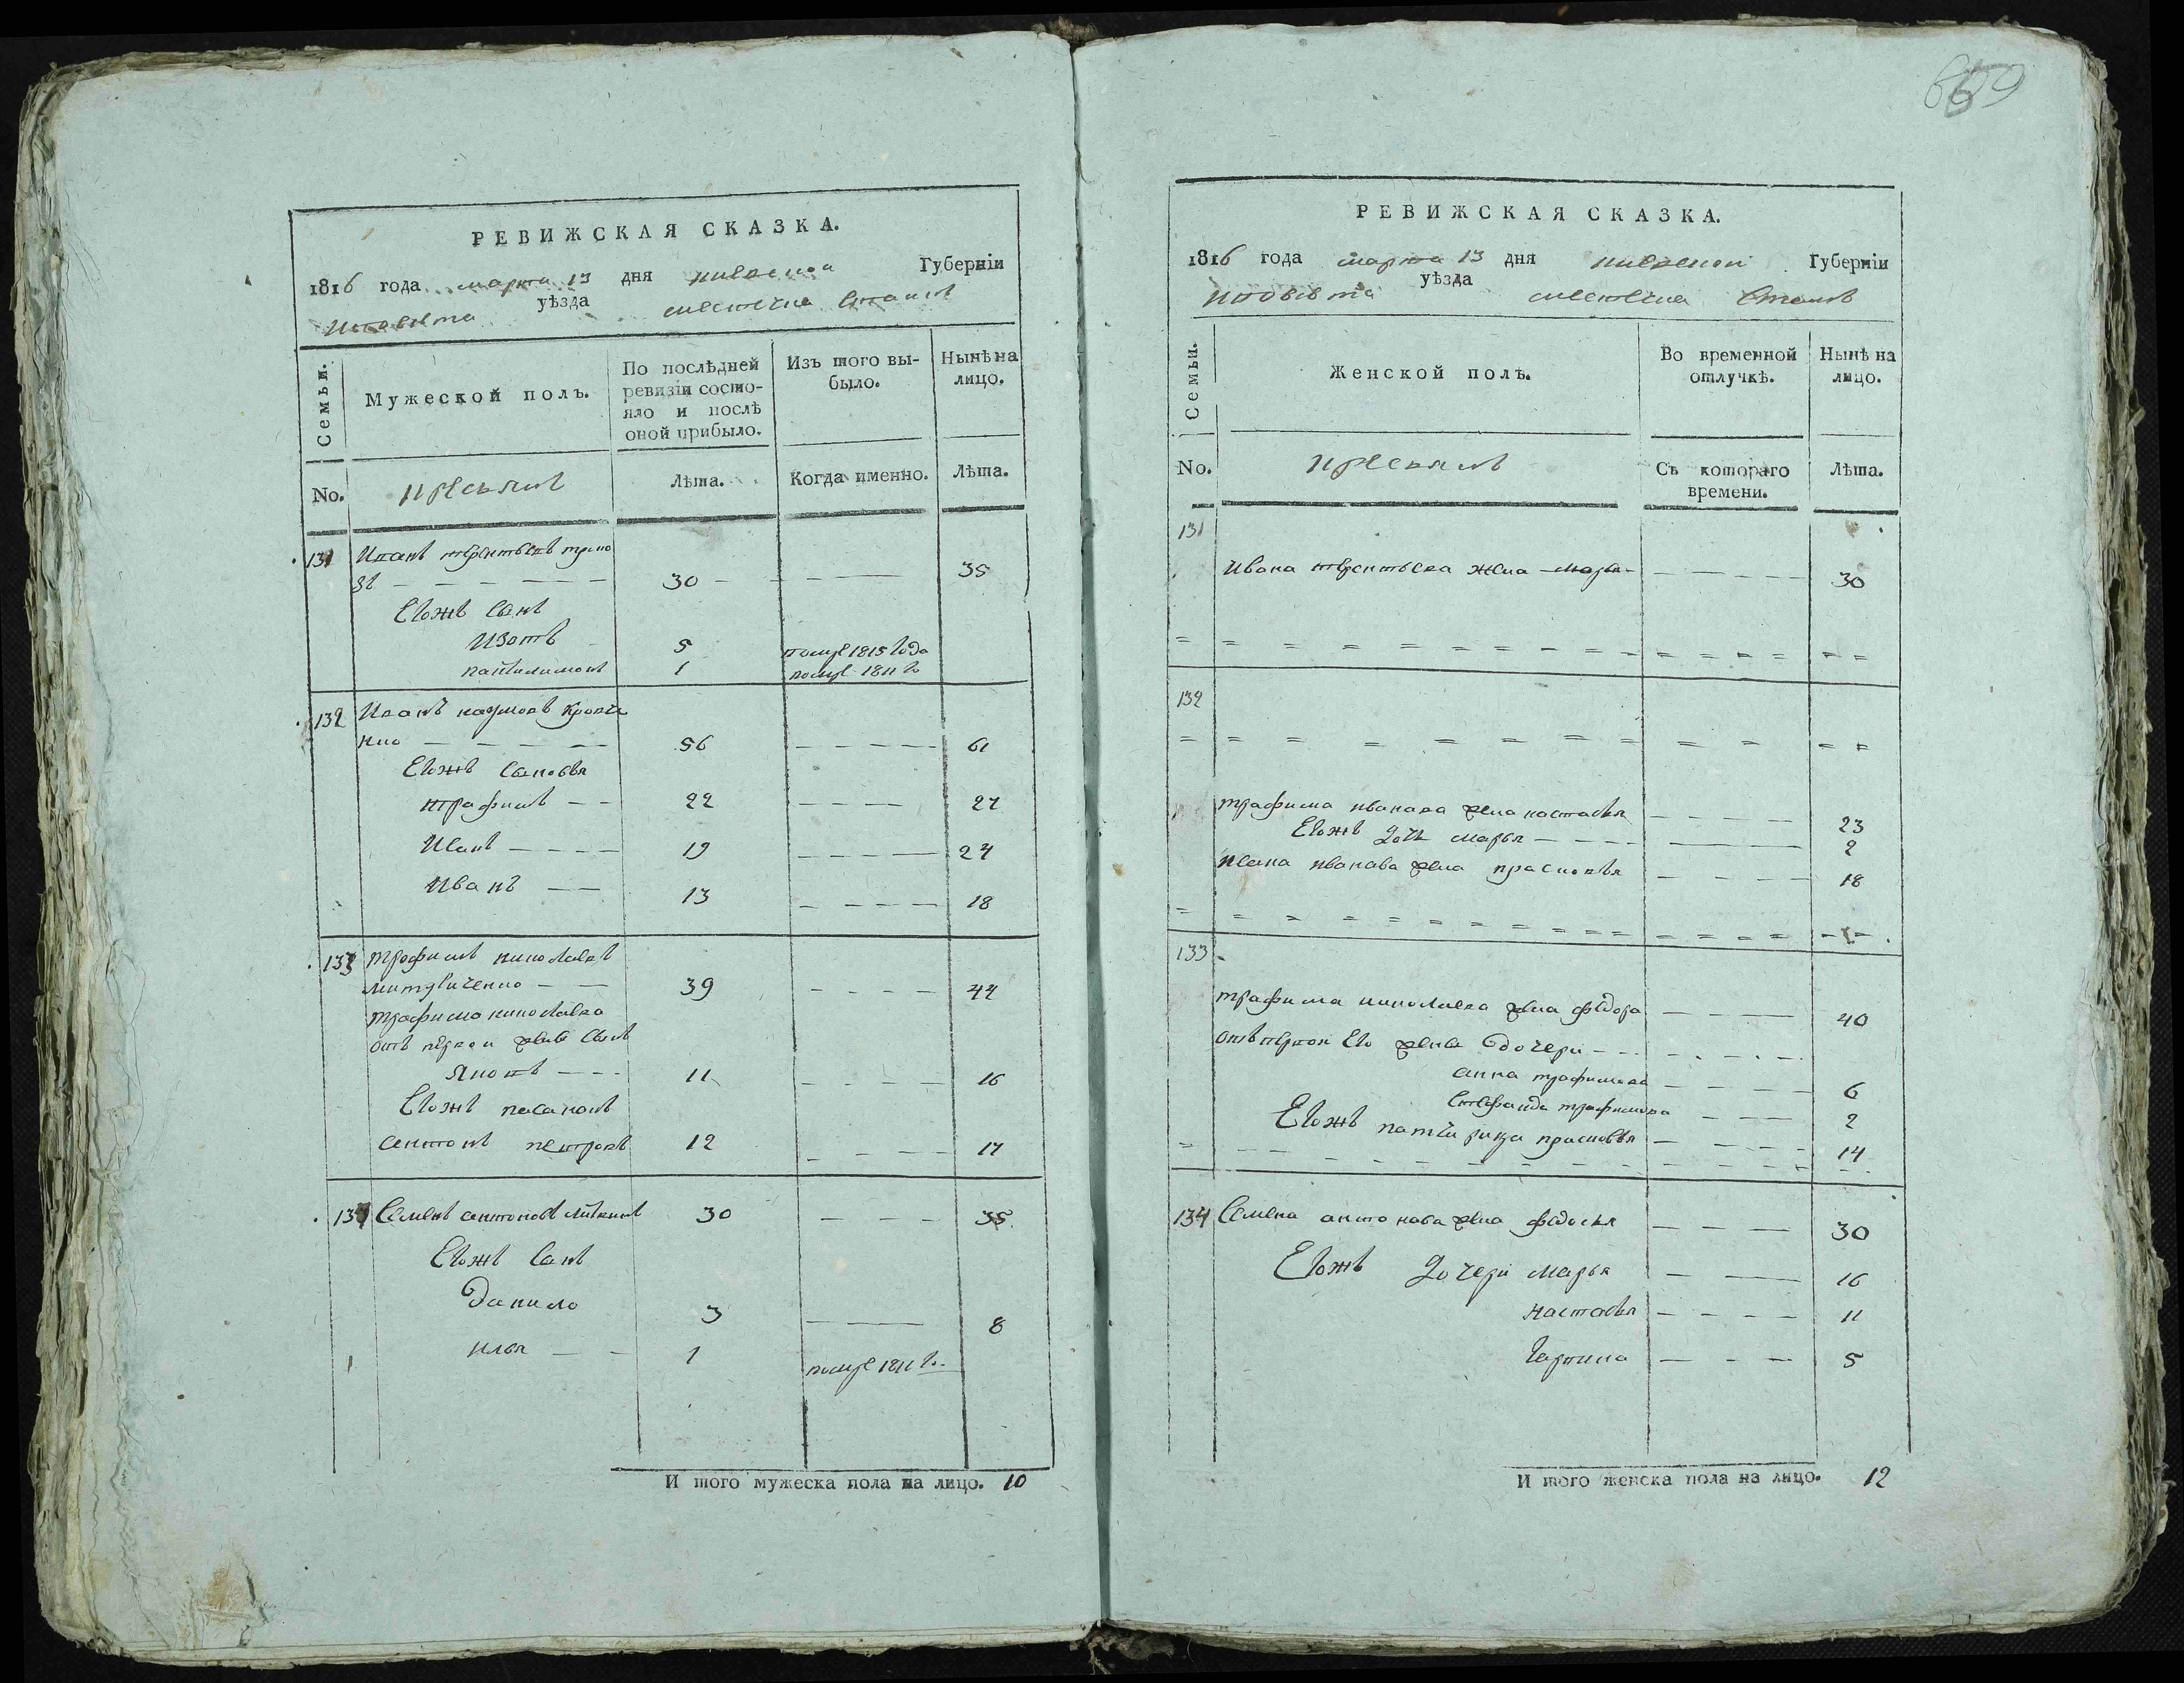 659
РЕВИЖСКАЯ СКАЗКА.
1816 года марта 13 дня Киевской Губерніи
уѣзда местечка
Семьи.
Мужеской полъ.
По послѣдней
ревизіи состо-
яло и послѣ
оной прибыло.
Изъ того вы-
было.
Нынѣ на
лицо.
No.
Лѣта.
Когда именно.
Лѣта.
131 Иванъ терентьевъ
30 35
Евожъ сынъ
Изотъ 5 помре 1815 года
пантилимонъ 1 помре 1811 го
132 Иванъ наумовъ
56 61
Евожъ сыновья
трафимъ 22 27
Иванъ 19 24
Иванъ 13 18
133 трофимъ
39 44
трофима
отъ первой жены сынъ
11 16
Евожъ
антонъ петровъ 12 17
134 Семенъ антоновъ 30 35
Евожъ сынъ
данило 3 8
илья 1 помре 1811 го
И того мужеска пола на лицо. 10
РЕВИЖСКАЯ СКАЗКА.
1816 года марта 13 дня Киевской Губерніи
уѣзда местечка
Семьи.
Женской полъ.
Во временной
отлучкѣ.
Нынѣ на
лицо.
No.
Съ котораго
времени.
Лѣта.
131
Ивана терентьева жена марья 30
132
трафима иванава жена настасья 23
Евожъ дочь марья 2
ивана иванава жена прасковья 18
133
трафима жена федора 40
отъ первой ево жены дочери
анна трафимова 6
трафимова 2
Евожъ прасковья 14
134 Семена антонава жена федосья 30
Евожъ дочери марья 16
настасья 11
5
И того женска пола на лицо. 12